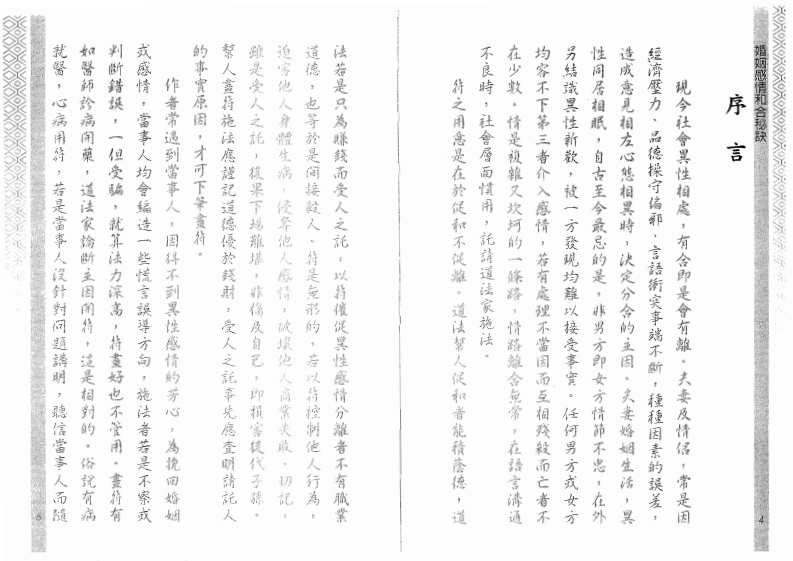 婚姻感情和合秘訣
序言
現今社會異性相處，有合即是會有離。夫妻及情侶，常是因
經濟壓力、品德操守偏邪、言語衝突事端不斷，種種因素的誤差，
造成意見相左心態相異時，決定分合的主因。夫妻婚姻生活，異
性同居相眠，自古至今最忌的是，非男方即女方情節不忠，在外
另結識異性新歡，被一方發現均難以接受事實。任何男方或女方
均容不下第三者介入感情，若有處理不當因而互相殘殺而亡者不
在少數。情是複雜又坎坷的一條路，情路離合無常，在語言溝通
不良時，社會層面慣用，託請道法家施法。
符之用意是在於促和不促離。道法幫人促和者能積蔭德，道
4
法若是只為賺錢而受人之託，以符催促異性感情分離者不有職業
道德，也等於是間接殺人。符是無形的，若以符控制他人行為，
迫害他人身體生病，侵奪他人感情，破壞他人商業失敗、切記，
雖是受人之託，後果下場難堪，非傷及自己，即損害後代子孫。
幫人畫符施法應謹記道德優於錢財，受人之託事先應查明請託人
的事實原因，才可下筆畫符。
作者常遇到當事人，因得不到異性感情的芳心，為挽回婚姻
或感情，當事人均會編造一些慌言誤導方向，施法者若是不察或
判斷錯誤，一但受騙，就算法力深高，符畫好也不管用。畫符有
如醫師診病開藥，道法家論斷主因開符，這是相對的。俗說有病
就醫，心病用符，若是當事人沒針對問題講明，聽信當事人而隨